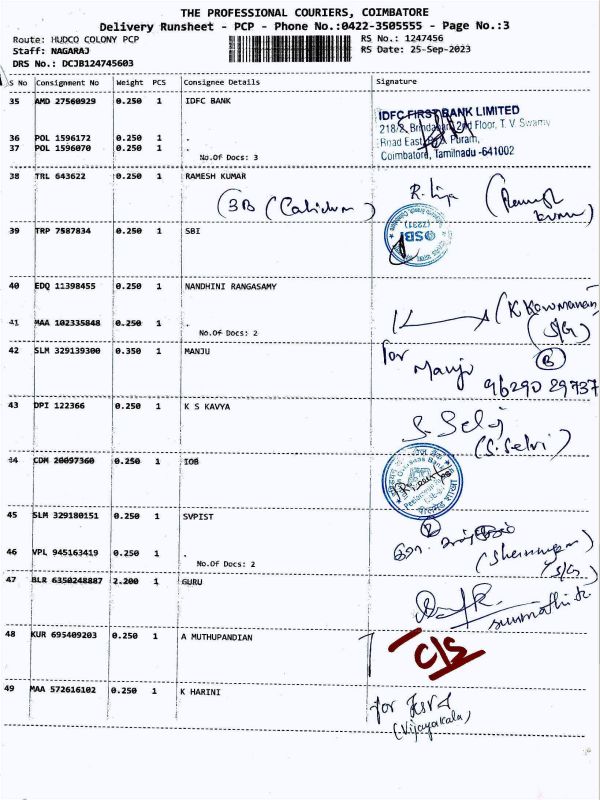 THE PROFESSIONAL COURIERS, COIMBATORE
Delivery Runsheet - PCP - Phone No.:0422-3505555 - Page No.:3
Route: HUDCO COLONY PCP
RS No.: 1247456
Staff: NAGARAJ
RS Date: 25-Sep-2023
DRS No.: DCJB124745603
S No Consignment No Weight PCS Consignee Details Signature
35 AMD 27560929 0.250 1 IDFC BANK
IDFC FIRST BANK LIMITED
218/2, 2nd Floor, T. V. Swamy
Road East, Puram,
Coimbatore, Tamilnadu -641002
36 POL 1596172 0.250 1 .
37 POL 1596070 0.250 1 .
No.Of Docs: 3
38 TRL 643622 0.250 1 RAMESH KUMAR
3B
39 TRP 7587834 0.250 1 SBI
SBI
(2231)
40 EDQ 11398455 0.250 1 NANDHINI RANGASAMY
41 MAA 102335848 0.250 1 .
No.Of Docs: 2
(S/G)
42 SLM 329139300 0.350 1 MANJU
for
Manju
96290 29737
43 DPI 122366 0.250 1 K S KAVYA
(S. Selvi)
44 COM 20097360 0.250 1 IOB
45 SLM 329180151 0.250 1 SVPIST
46 VPL 945163419 0.250 1 .
No.Of Docs: 2
(S/G)
47 BLR 6350248887 2.200 1 GURU
48 KUR 695409203 0.250 1 A MUTHUPANDIAN
C/S
49 MAA 572616102 0.250 1 K HARINI
for
(Vijayakala)